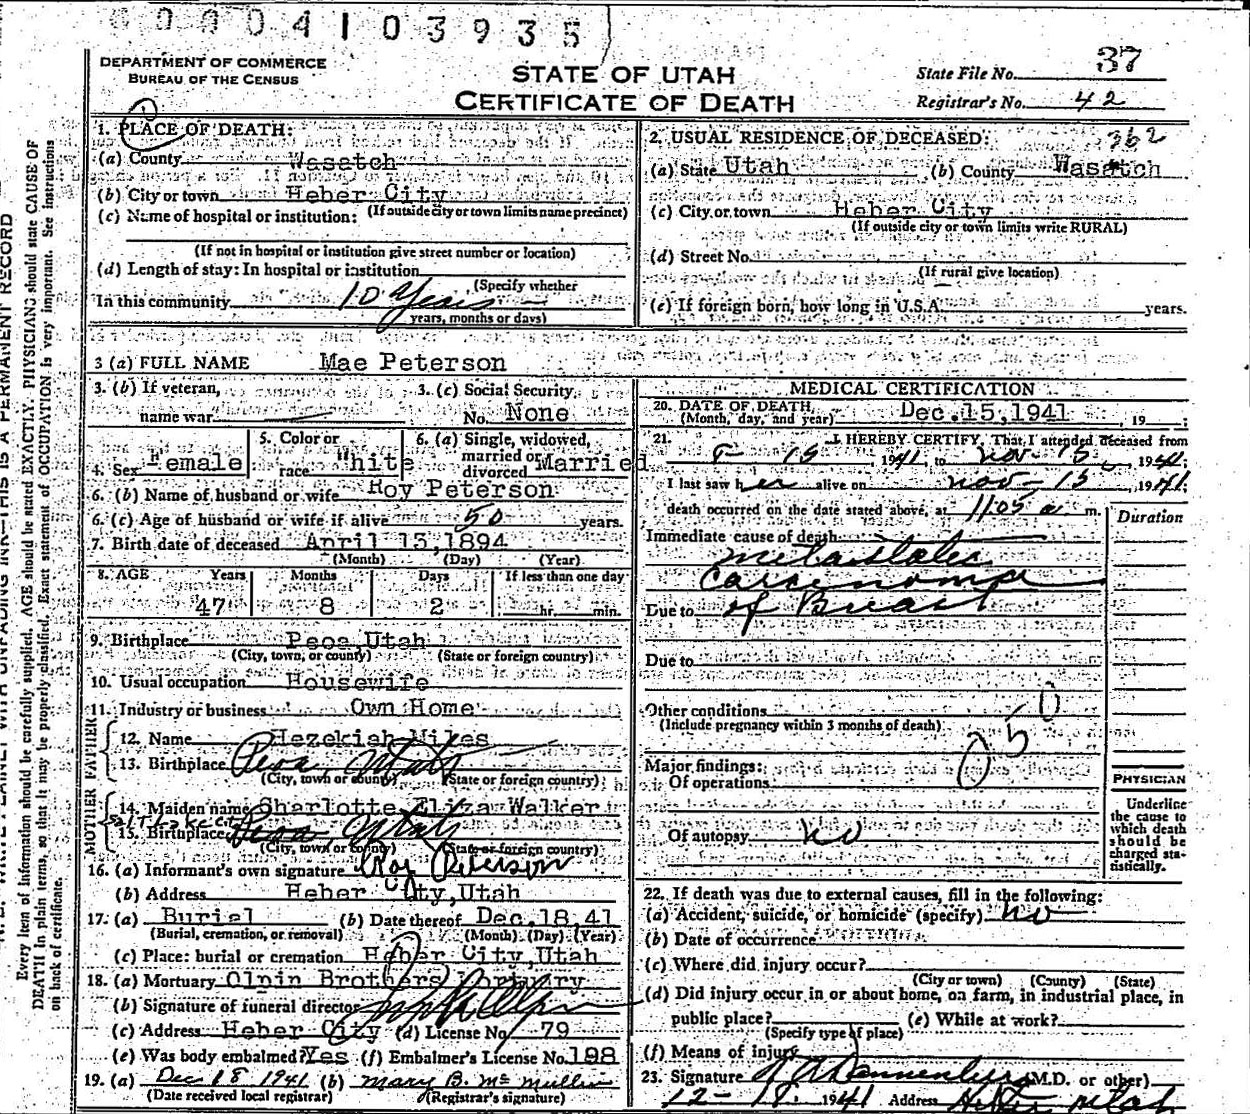 00004103935
DEPARTMENT OF COMMERCE
BUREAU OF THE CENSUS
STATE OF UTAH
CERTIFICATE OF DEATH
State File No. 37
Registrar's No. 42
1. PLACE OF DEATH:
(a) County Wasatch
(b) City or town Heber City
(c) Name of hospital or institution: (If outside city or town limits name precinct)
(If not in hospital or institution give street number or location)
(d) Length of stay: In hospital or institution
(Specify whether
In this community 10 years
years, months or days)
2. USUAL RESIDENCE OF DECEASED: 362
(a) State Utah (b) County Wasatch
(c) City or town Heber City
(If outside city or town limits write RURAL)
(d) Street No.
(If rural give location)
(e) If foreign born, how long in U.S.A. years.
3 (a) FULL NAME Mae Peterson
3. (b) If veteran,
name war
3. (c) Social Security
No. None
4. Sex Female
5. Color or
race White
6. (a) Single, widowed,
married or
divorced Married
6. (b) Name of husband or wife Roy Peterson
6. (c) Age of husband or wife if alive 50 years.
7. Birth date of deceased April 13, 1894
(Month) (Day) (Year)
8. AGE Years Months Days If less than one day
47 8 2 hr. min.
9. Birthplace Peoa, Utah
(City, town, or county) (State or foreign country)
10. Usual occupation Housewife
11. Industry or business Own Home
FATHER
12. Name Hezekiah Miles
13. Birthplace Peoa Utah
(City, town or county) (State or foreign country)
MOTHER
14. Maiden name Sharlotte Eliza Walker
Salt Lake City
15. Birthplace Peoa Utah
(City, town or county) (State or foreign country)
16. (a) Informant's own signature Roy Peterson
(b) Address Heber City, Utah
17. (a) Burial (b) Date thereof Dec. 18, 41
(Burial, cremation, or removal) (Month) (Day) (Year)
(c) Place: burial or cremation Heber City, Utah
18. (a) Mortuary Olpin Brothers Mortuary
(b) Signature of funeral director
(c) Address Heber City (d) License No. 79
(e) Was body embalmed? Yes (f) Embalmer's License No. 198
19. (a) Dec 18 1941 (b) Mary B. Mc Mullin
(Date received local registrar) (Registrar's signature)
MEDICAL CERTIFICATION
20. DATE OF DEATH Dec. 15, 1941, 19
(Month, day, and year)
21. I HEREBY CERTIFY, That I attended deceased from
15, 1941 to Nov. 15, 1941;
I last saw her alive on Nov - 15, 1941;
death occurred on the date stated above, at 1105 a m.
Duration
Immediate cause of death
metastatic
carcinoma
Due to of Breast
Due to
Other conditions
(Include pregnancy within 3 months of death)
050
Major findings:
Of operations
Of autopsy no
PHYSICIAN
Underline
the cause to
which death
should be
charged sta-
tistically.
22. If death was due to external causes, fill in the following:
(a) Accident, suicide, or homicide (specify) no
(b) Date of occurrence
(c) Where did injury occur?
(City or town) (County) (State)
(d) Did injury occur in or about home, on farm, in industrial place, in
public place? (e) While at work?
(Specify type of place)
(f) Means of injury
23. Signature (M.D. or other)
12-18. 1941 Address Heber Utah
THIS IS A PERMANENT RECORD
Every item of information should be carefully supplied. AGE should be stated EXACTLY. PHYSICIAN should state CAUSE OF
DEATH in plain terms, so that it may be properly classified. Exact statement of OCCUPATION is very important. See instructions
on back of certificate.